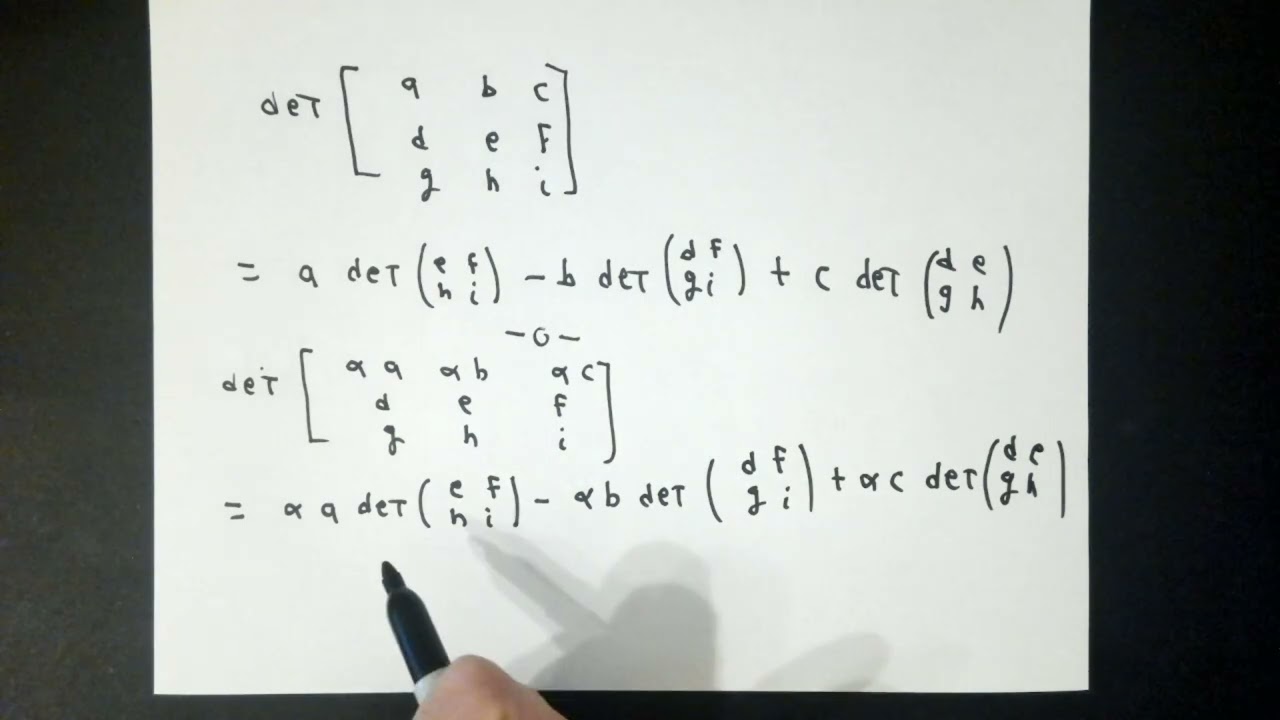 det [ a b c
d e f
g h i ]
= a det ( e f
h i ) - b det ( d f
g i ) + c det ( d e
g h )
-o-
det [ α a α b α c
d e f
g h i ]
= α a det ( e f
h i ) - α b det ( d f
g i ) + α c det ( d e
g h )